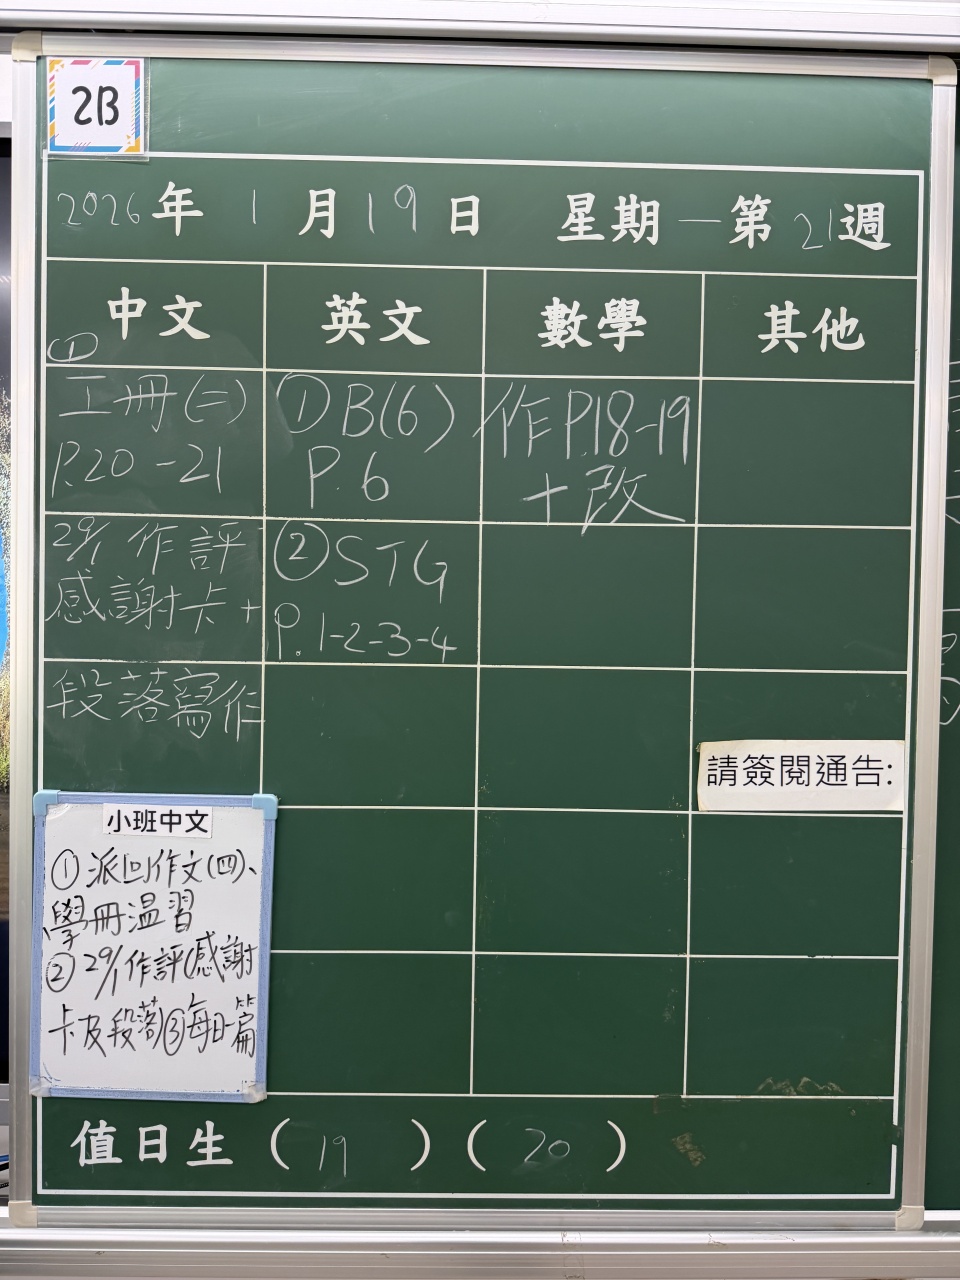 2B
2026年 1月19日 星期一第21週
中文 英文 數學 其他
①
工冊(二)
P.20-21
29/1 作評
感謝卡+
段落寫作
①B(6)
P.6
②STG
P.1-2-3-4
作P.18-19
+改
請簽閱通告:
小班中文
①派回作文(四)、
學冊温習
②29/1作評(感謝
卡及段落)③每日一篇
值日生(19)(20)